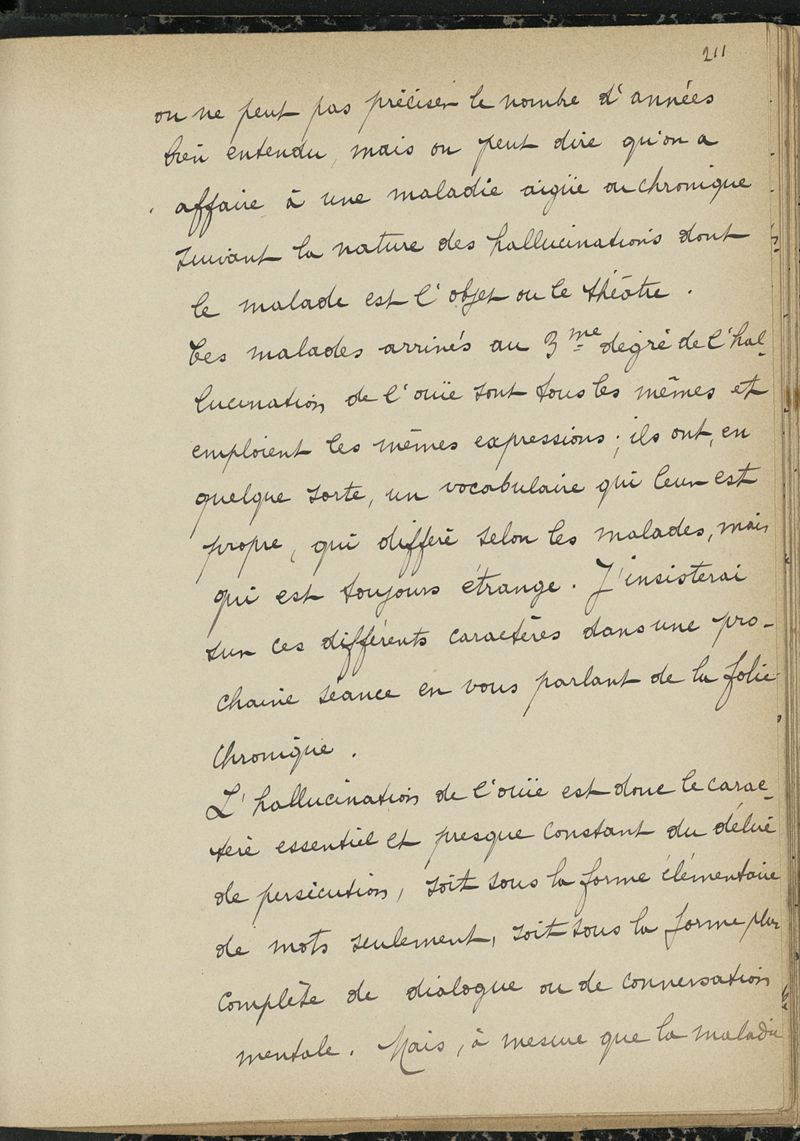 211
on ne peut pas préciser le nombre d'années
bien entendu, mais on peut dire qu'on a
affaire à une maladie aigüe ou chronique
suivant la nature des hallucinations dont
le malade est l'objet ou le théâtre.
Les malades arrivés au 3me degré de l'hal-
lucination de l'ouïe sont tous les mêmes et
emploient les mêmes expressions; ils ont, en
quelque sorte, un vocabulaire qui leur est
propre, qui diffère selon les malades, mais
qui est toujours étrange. J'insisterai
sur ces différents caractères dans une pro-
chaine séance en vous parlant de la folie
chronique.
L'hallucination de l'ouïe est donc le carac-
tère essentiel et presque constant du délire
de persécution, soit sous la forme élémentaire
de mots seulement, soit sous la forme plus
complète de dialogue ou de conversation
mentale. Mais, à mesure que la maladie